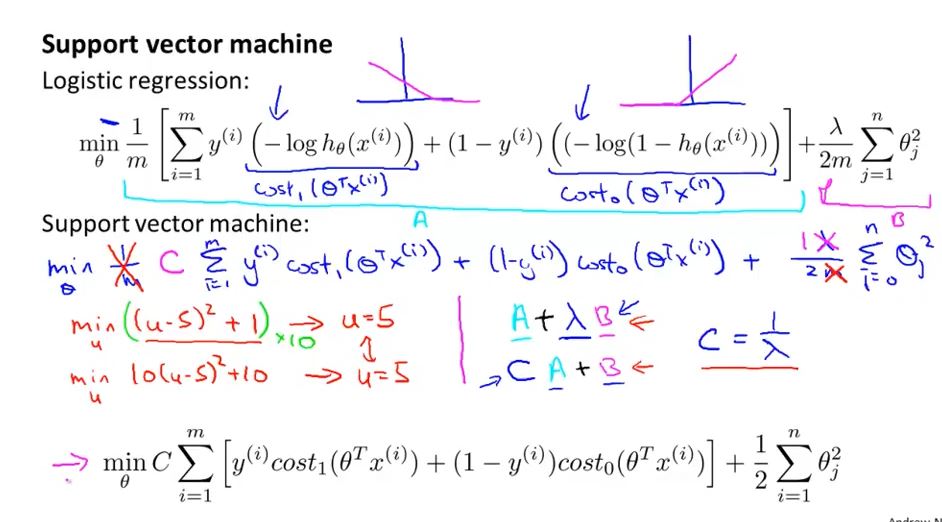 Support vector machine
Logistic regression:
min_θ 1/m [ Σ_{i=1}^{m} y^{(i)} (−log h_θ(x^{(i)})) + (1 − y^{(i)}) ((−log(1 − h_θ(x^{(i)})))) ] + λ/2m Σ_{j=1}^{n} θ_j^2
cost_1(θ^T x^{(i)}) cost_0(θ^T x^{(i)})
A B
Support vector machine:
min_θ 1/m C Σ_{i=1}^{m} y^{(i)} cost_1(θ^T x^{(i)}) + (1−y^{(i)}) cost_0(θ^T x^{(i)}) + 1 λ/2m Σ_{i=0}^{n} θ_j^2
min_u ((u−5)^2 + 1) ×10 → u=5 A + λ B ← C = 1/λ
min_u 10(u−5)^2+10 → u=5 → C A + B ←
→ min_θ C Σ_{i=1}^{m} [ y^{(i)} cost_1(θ^T x^{(i)}) + (1 − y^{(i)}) cost_0(θ^T x^{(i)}) ] + 1/2 Σ_{i=1}^{n} θ_j^2
Andrew N